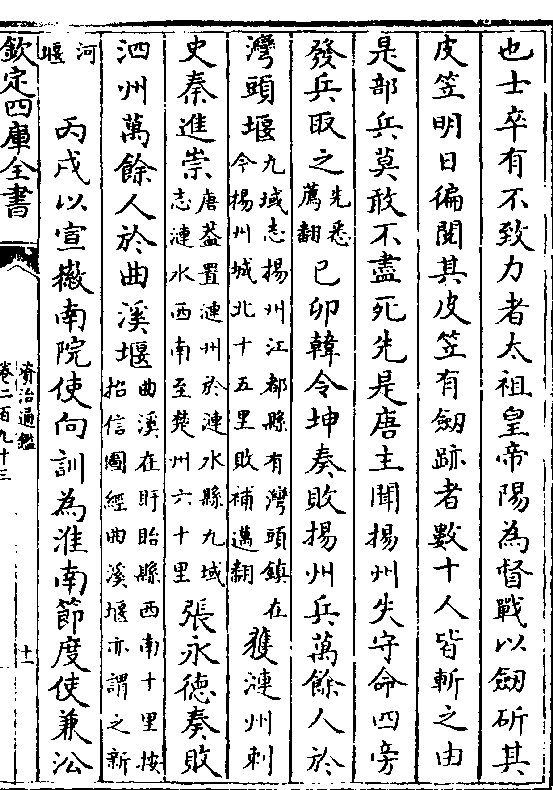 也士卒有不致力者太祖皇帝陽為督戰以劔斫其
皮笠明日徧閱其皮笠有劔跡者數十人皆斬之由
是部兵莫敢不盡死先是唐主聞揚州失守命四旁
發兵取之先悉薦翻己卯韓令坤奏敗揚州兵萬餘人於
灣頭堰九域志揚州江都縣有灣頭鎮在今揚州城北十五里敗補邁翻獲漣州刺
史秦進崇唐葢置漣州於漣水縣九域志漣水西南至楚州六十里張永德奏敗
泗州萬餘人於曲溪堰曲溪在盱眙縣西南十里按招信圖經曲溪堰亦謂之新
河堰
丙戌以宣徽南院使向訓為淮南節度使兼㳂
欽定四庫全書
資治通鑑
卷二百九十三
十一